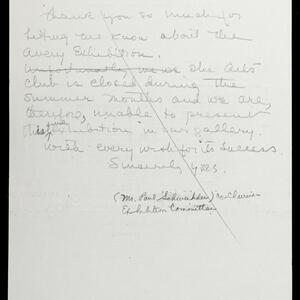 Thank you so much for
letting me know about the
Avery Exhibition.
Unfortunately, the Arts
Club is closed during the
Summer months and we are,
therefore, unable to present
this exhibition in our gallery.
With every wish for its success
Sincerely yrs.
(Mr. Paul Schweikher) Chairman
Exhibition Committee